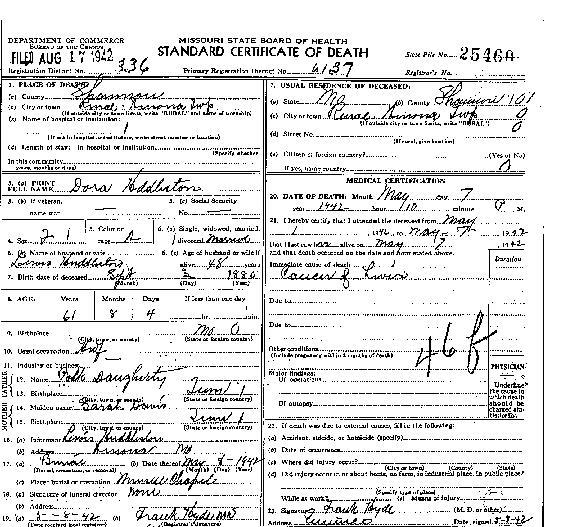 DEPARTMENT OF COMMERCE
BUREAU OF THE CENSUS
MISSOURI STATE BOARD OF HEALTH
STANDARD CERTIFICATE OF DEATH
FILED AUG 17 1942
State File No. 25460
Registration District No. 336
Primary Registration District No. 6137
Registrar's No.
1. PLACE OF DEATH:
(a) County Shannon
(b) City or town
(c) Name of hospital or institution:
(d) Length of stay: In hospital or institution
In this community
2. USUAL RESIDENCE OF DECEASED:
(a) State Mo (b) County Shannon 101
(c) City or town Rural 0
(d) Street No. 0
(e) Citizen of foreign country? (Yes or No)
If yes, name country 0
3. (a) PRINT FULL NAME Dora Huddleston
3. (b) If veteran, name war
3. (c) Social Security No.
4. Sex
5. Color or race
6. (a) Single, widowed, married, divorced Married
6. (b) Name of husband or wife Lewis Huddleston
6. (c) Age of husband or wife if alive 48 years
7. Birth date of deceased Sept 3 1880
(Month) (Day) (Year)
8. AGE: Years Months Days If less than one day
61 8 4 hr. min.
9. Birthplace Mo 0
10. Usual occupation
11. Industry or business
12. Name Polk Daugherty
13. Birthplace Tenn 1
14. Maiden name Sarah Davis
15. Birthplace Tenn 1
FATHER
MOTHER
16. (a) Informant Lewis Huddleston
(b) Mo
17. (a) Burial (b) Date thereof May 8-1942
(c) Place: burial or cremation Chapile
18. (a) Signature of funeral director None
19. (a) 8-8-42 (b) Frank Hyde MD
MEDICAL CERTIFICATION
20. DATE OF DEATH: Month May day 7
year 1942 hour 1 10 minute P M.
21. I hereby certify that I attended the deceased from May
1 1942 to May 7 1942
that I last saw h alive on May 7 1942
and that death occurred on the date and hour stated above.
Duration
Immediate cause of death
Cancer of Liver
Due to
Due to
46f
Other conditions
(Include pregnancy within 3 months of death)
Major findings:
Of operations
Of autopsy
PHYSICIAN
Underline the cause to which death should be charged statistically.
22. If death was due to external causes, fill in the following:
(a) Accident, suicide, or homicide (specify)
(b) Date of occurrence
(c) Where did injury occur?
(City or town) (County) (State)
(d) Did injury occur in or about home, on farm, in industrial place, in public place?
(Specify type of place)
While at work? (e) Means of injury
23. Signature Frank Hyde (M. D. or other)
Address Eminence Date signed